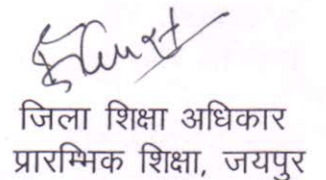 जिला शिक्षा अधिकार
प्रारम्भिक शिक्षा, जयपुर